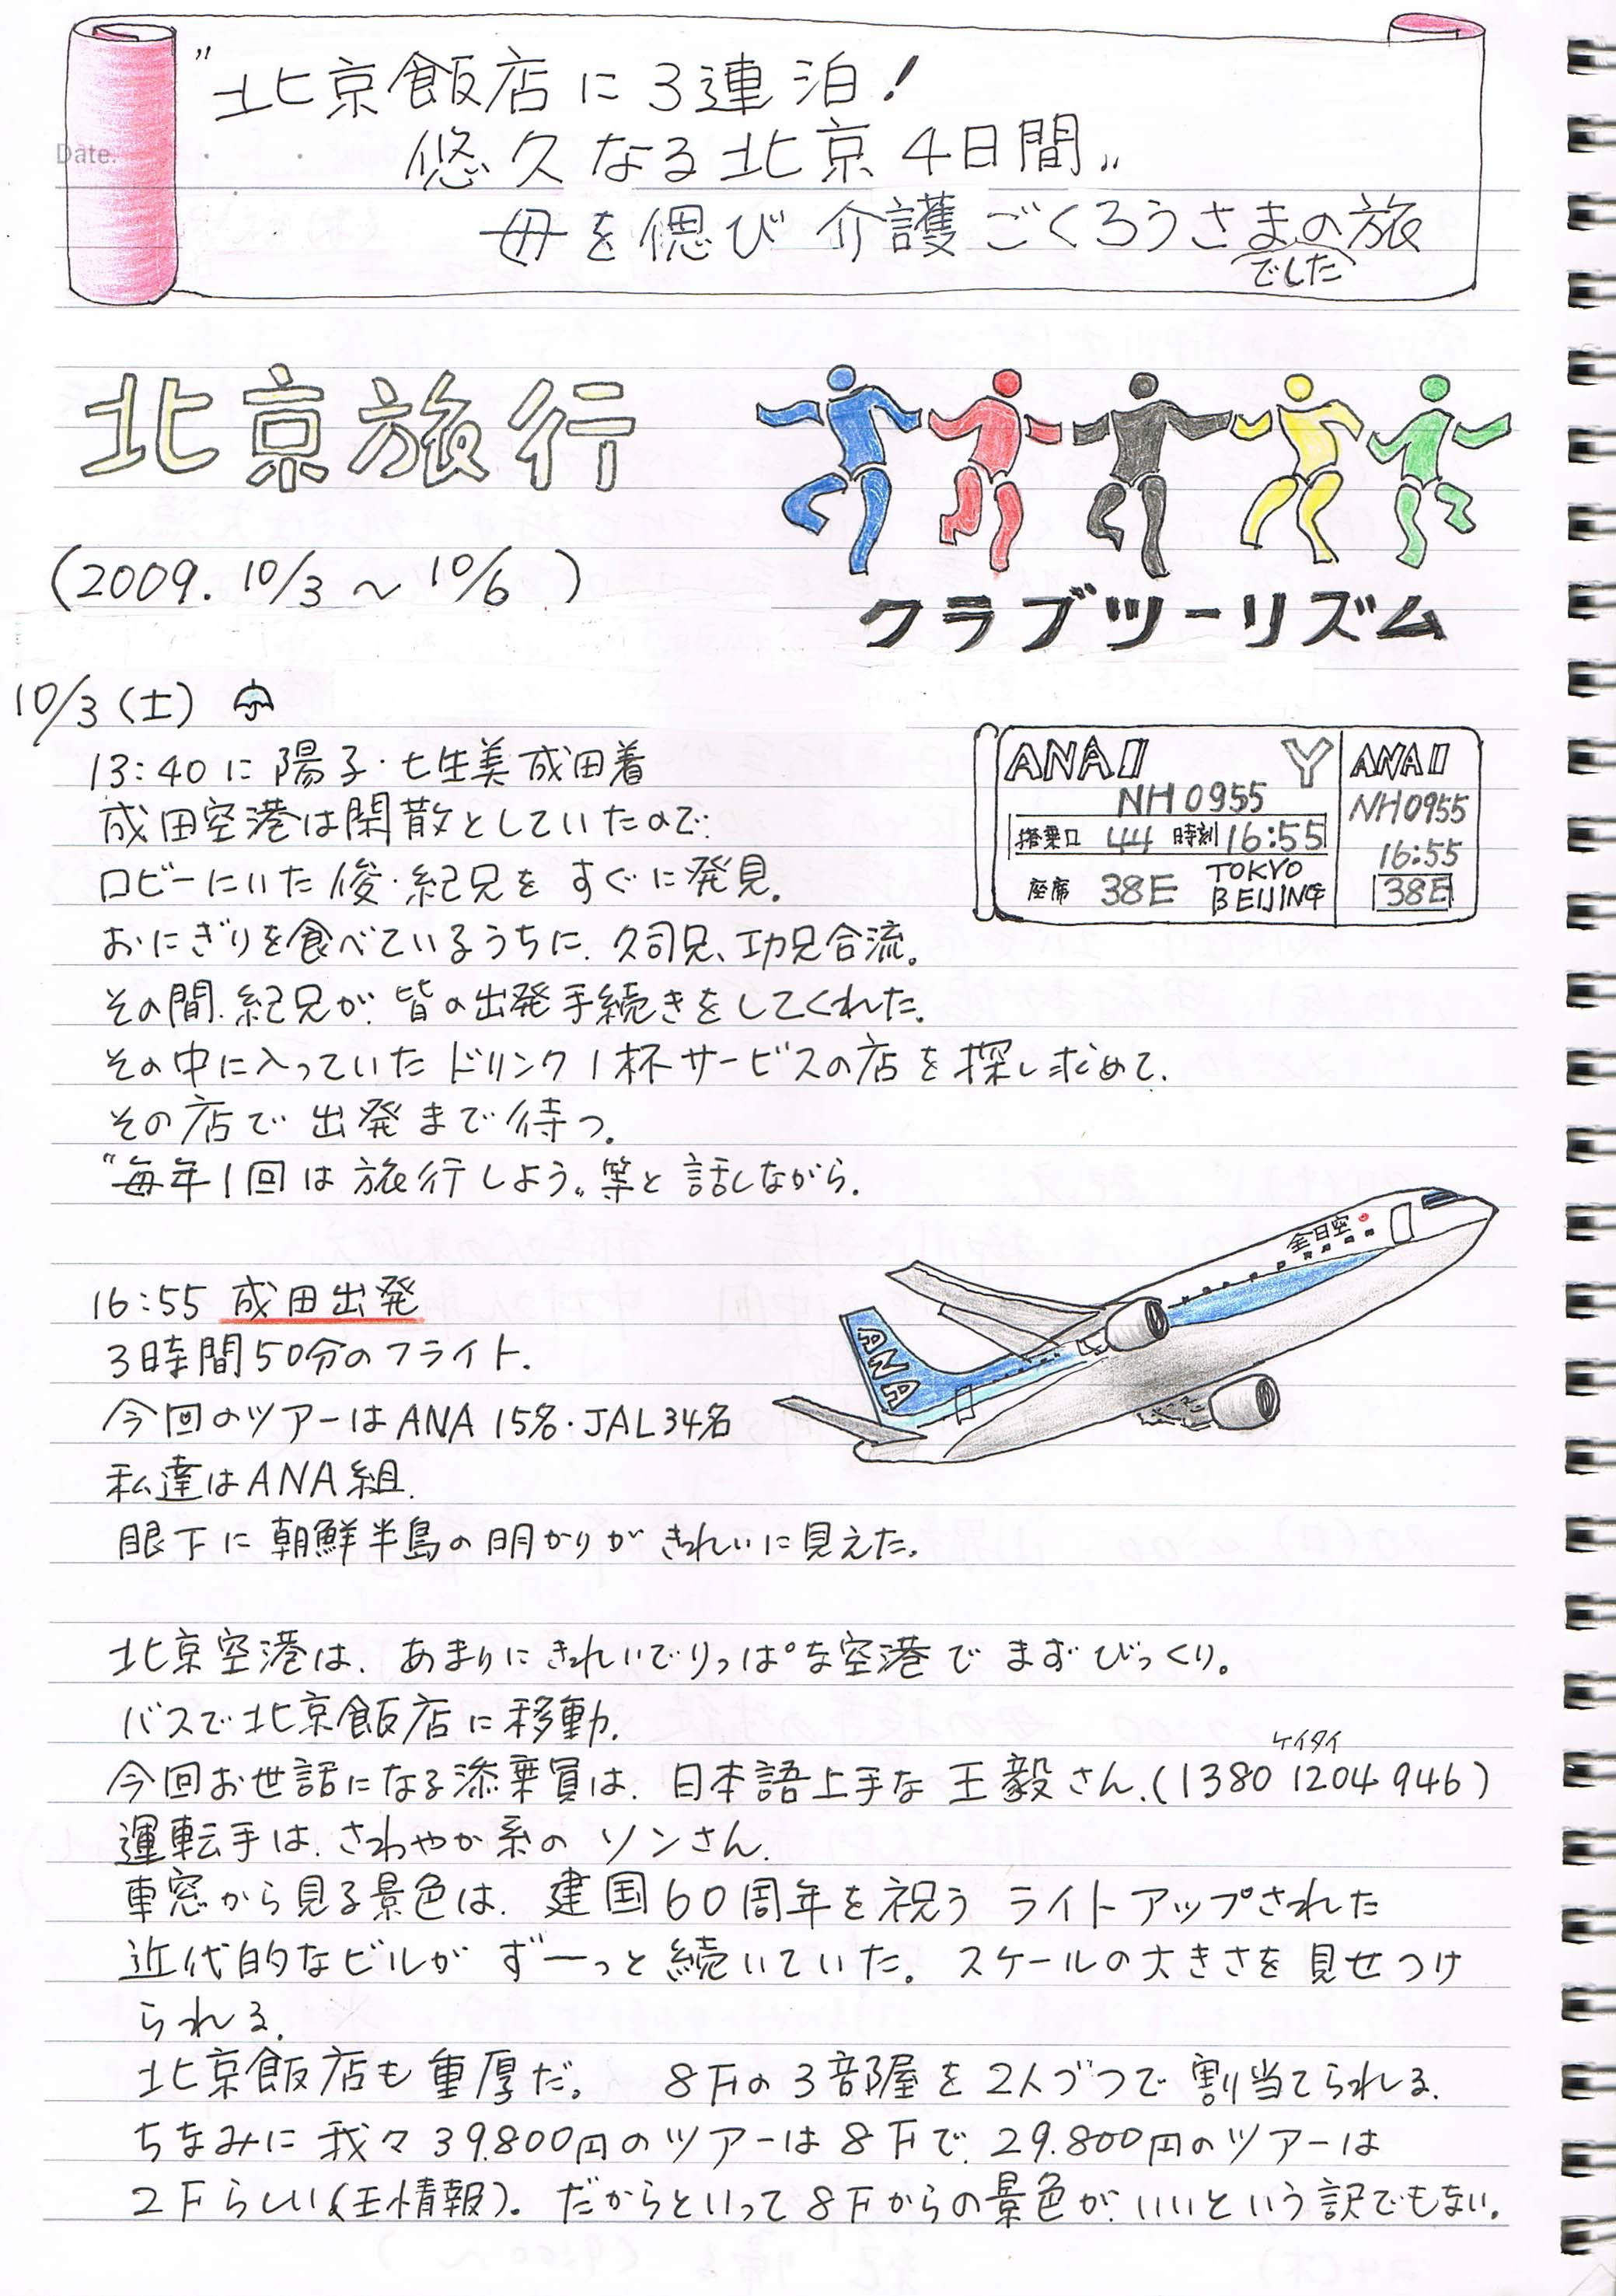 Date.
"北京飯店に3連泊！
悠久なる北京4日間"
母を偲び 介護ごくろうさまの旅
でした
北京旅行
(2009. 10/3 ～ 10/6 )
クラブツーリズム
10/3(土)
13:40に 陽子・七生美 成田着
成田空港は閑散としていたので
ロビーにいた 俊・紀兄を すぐに発見。
おにぎりを食べているうちに、久司兄、功兄合流。
その間、紀兄が、皆の出発手続きをしてくれた。
その中に入っていた ドリンク1杯サービスの店を探し求めて、
その店で 出発まで待つ。
"毎年1回は 旅行しよう"等と 話しながら。
ANA Y
NH0955
搭乗口 44 時刻 16:55
座席 38E TOKYO
BEIJING
ANA
NH0955
16:55
38E
16:55 成田出発
3時間50分のフライト.
今回のツアーはANA 15名・JAL34名
私達はANA組.
眼下に 朝鮮半島の明かりが きれいに見えた。
全日空
ANA
北京空港は、あまりにきれいでりっぱな空港で まずびっくり。
バスで北京飯店に移動.
ケイタイ
今回お世話になる添乗員は、日本語上手な 王毅さん.(1380 1204 946)
運転手は、さわやか系の ソンさん.
車窓から見る景色は、建国60周年を祝う ライトアップされた
近代的なビルが ずーっと続いていた。スケールの大きさを 見せつけ
られる.
北京飯店も重厚だ。 8Fの3部屋を 2人づつで 割り当てられる.
ちなみに 我々39.800円のツアーは8Fで、29.800円のツアーは
2Fらしい(王情報)。だからといって8Fからの景色が、いいという訳でもない。